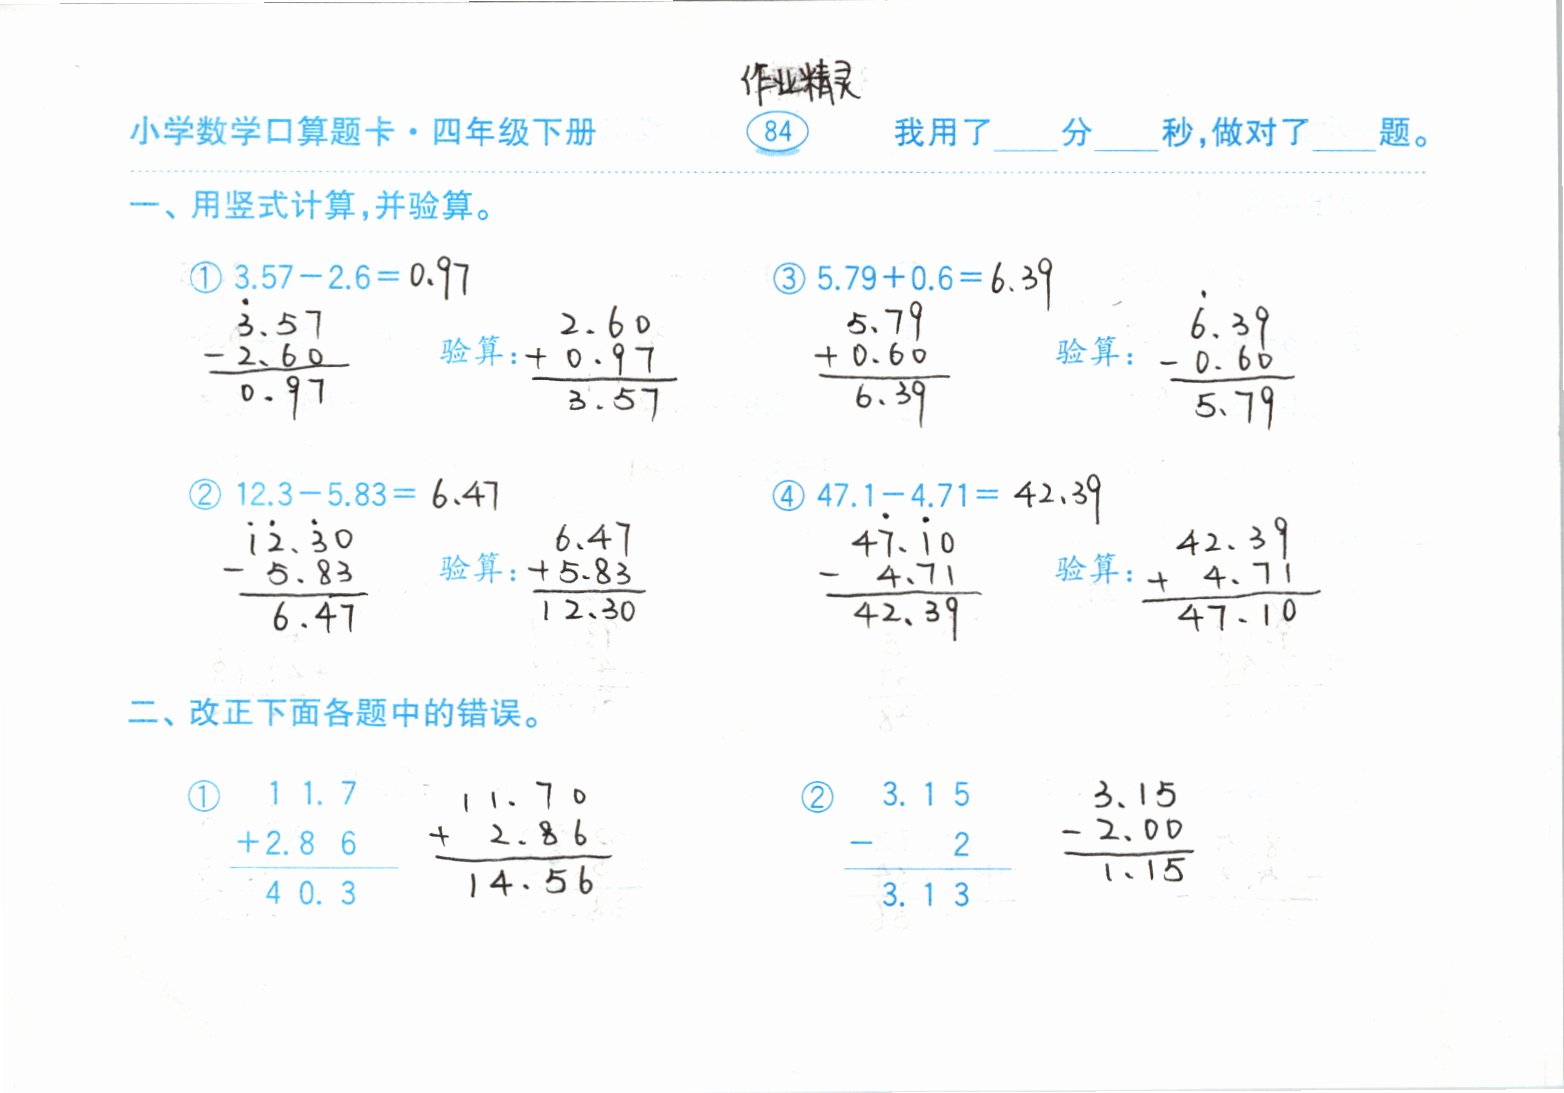 作业精灵
小学数学口算题卡·四年级下册 84 我用了____分____秒,做对了____题。
一、用竖式计算,并验算。
① 3.57-2.6=0.97
3.57
-2.60
0.97
验算:
2.60
+0.97
3.57
③ 5.79+0.6=6.39
5.79
+0.60
6.39
验算:
6.39
-0.60
5.79
② 12.3-5.83=6.47
12.30
-5.83
6.47
验算:
6.47
+5.83
12.30
④ 47.1-4.71=42.39
47.10
-4.71
42.39
验算:
42.39
+4.71
47.10
二、改正下面各题中的错误。
① 11.7
+2.86
40.3
11.70
+2.86
14.56
② 3.15
-2
3.13
3.15
-2.00
1.15